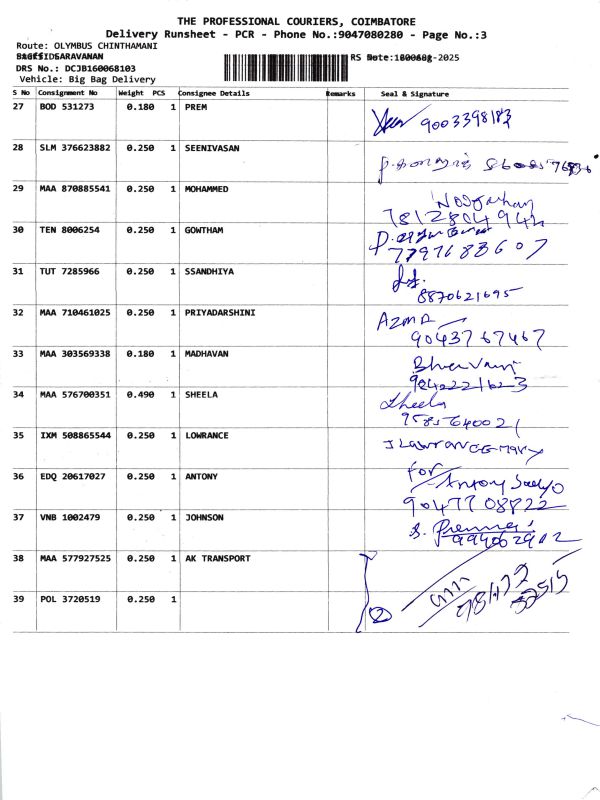 THE PROFESSIONAL COURIERS, COIMBATORE
Delivery Runsheet - PCR - Phone No.:9047080280 - Page No.:3
Route: OLYMBUS CHINTHAMANI
SARAVANAN RS -2025
DRS No.: DCJB160068103
Vehicle: Big Bag Delivery
S No Consignment No Weight PCS Consignee Details Remarks Seal & Signature
27 BOD 531273 0.180 1 PREM 9003398183
28 SLM 376623882 0.250 1 SEENIVASAN
29 MAA 870885541 0.250 1 MOHAMMED
30 TEN 8006254 0.250 1 GOWTHAM
7797683607
31 TUT 7285966 0.250 1 SSANDHIYA
8870621695
32 MAA 710461025 0.250 1 PRIYADARSHINI AZMA
9043767467
33 MAA 303569338 0.180 1 MADHAVAN
34 MAA 576700351 0.490 1 SHEELA Sheela
9585640021
35 IXM 508865544 0.250 1 LOWRANCE
36 EDQ 20617027 0.250 1 ANTONY for
Antony
9047708822
37 VNB 1002479 0.250 1 JOHNSON
9994062902
38 MAA 577927525 0.250 1 AK TRANSPORT
39 POL 3720519 0.250 1
2